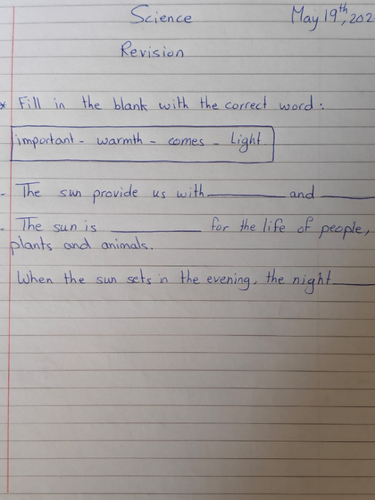 Science May 19th, 202
Revision
* Fill in the blank with the correct word:
important - warmth - comes - Light
- The sun provide us with________ and ______
- The sun is ________ for the life of people,
plants and animals.
When the sun sets in the evening, the night_____